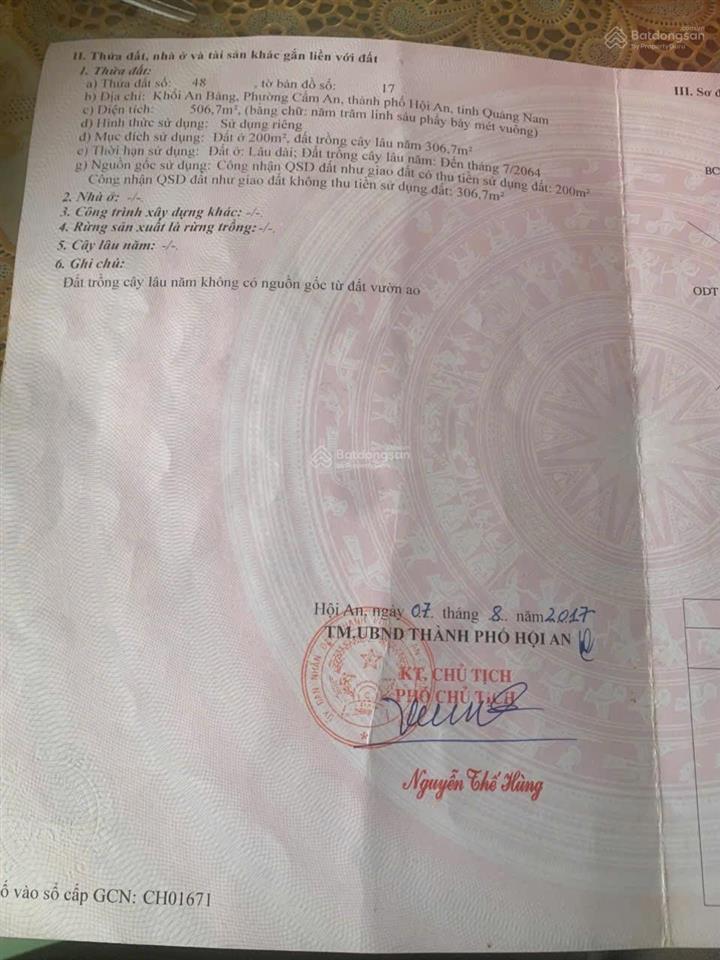 II. Thửa đất, nhà ở và tài sản khác gắn liền với đất
1. Thửa đất:
a) Thửa đất số: 48 , tờ bản đồ số: 17
b) Địa chỉ: Khối An Bàng, Phường Cẩm An, thành phố Hội An, tỉnh Quảng Nam
c) Diện tích: 506,7m², (bằng chữ: năm trăm linh sáu phẩy bảy mét vuông)
d) Hình thức sử dụng: Sử dụng riêng
đ) Mục đích sử dụng: Đất ở 200m², đất trồng cây lâu năm 306,7m²
e) Thời hạn sử dụng: Đất ở: Lâu dài; Đất trồng cây lâu năm: Đến tháng 7/2064
g) Nguồn gốc sử dụng: Công nhận QSD đất như giao đất có thu tiền sử dụng đất: 200m²
Công nhận QSD đất như giao đất không thu tiền sử dụng đất: 306,7m²
2. Nhà ở: -/-
3. Công trình xây dựng khác: -/-.
4. Rừng sản xuất là rừng trồng: -/-.
5. Cây lâu năm: -/-.
6. Ghi chú:
Đất trồng cây lâu năm không có nguồn gốc từ đất vườn ao
Hội An, ngày 07. tháng 8.. năm 2017
TM.UBND THÀNH PHỐ HỘI AN
KT. CHỦ TỊCH
PHÓ CHỦ TỊCH
Nguyễn Thế Hùng
ố vào sổ cấp GCN: CH01671
III. Sơ đ
BC
ODT
Batdongsan
by PropertyGuru
Batdongsan
by PropertyGuru